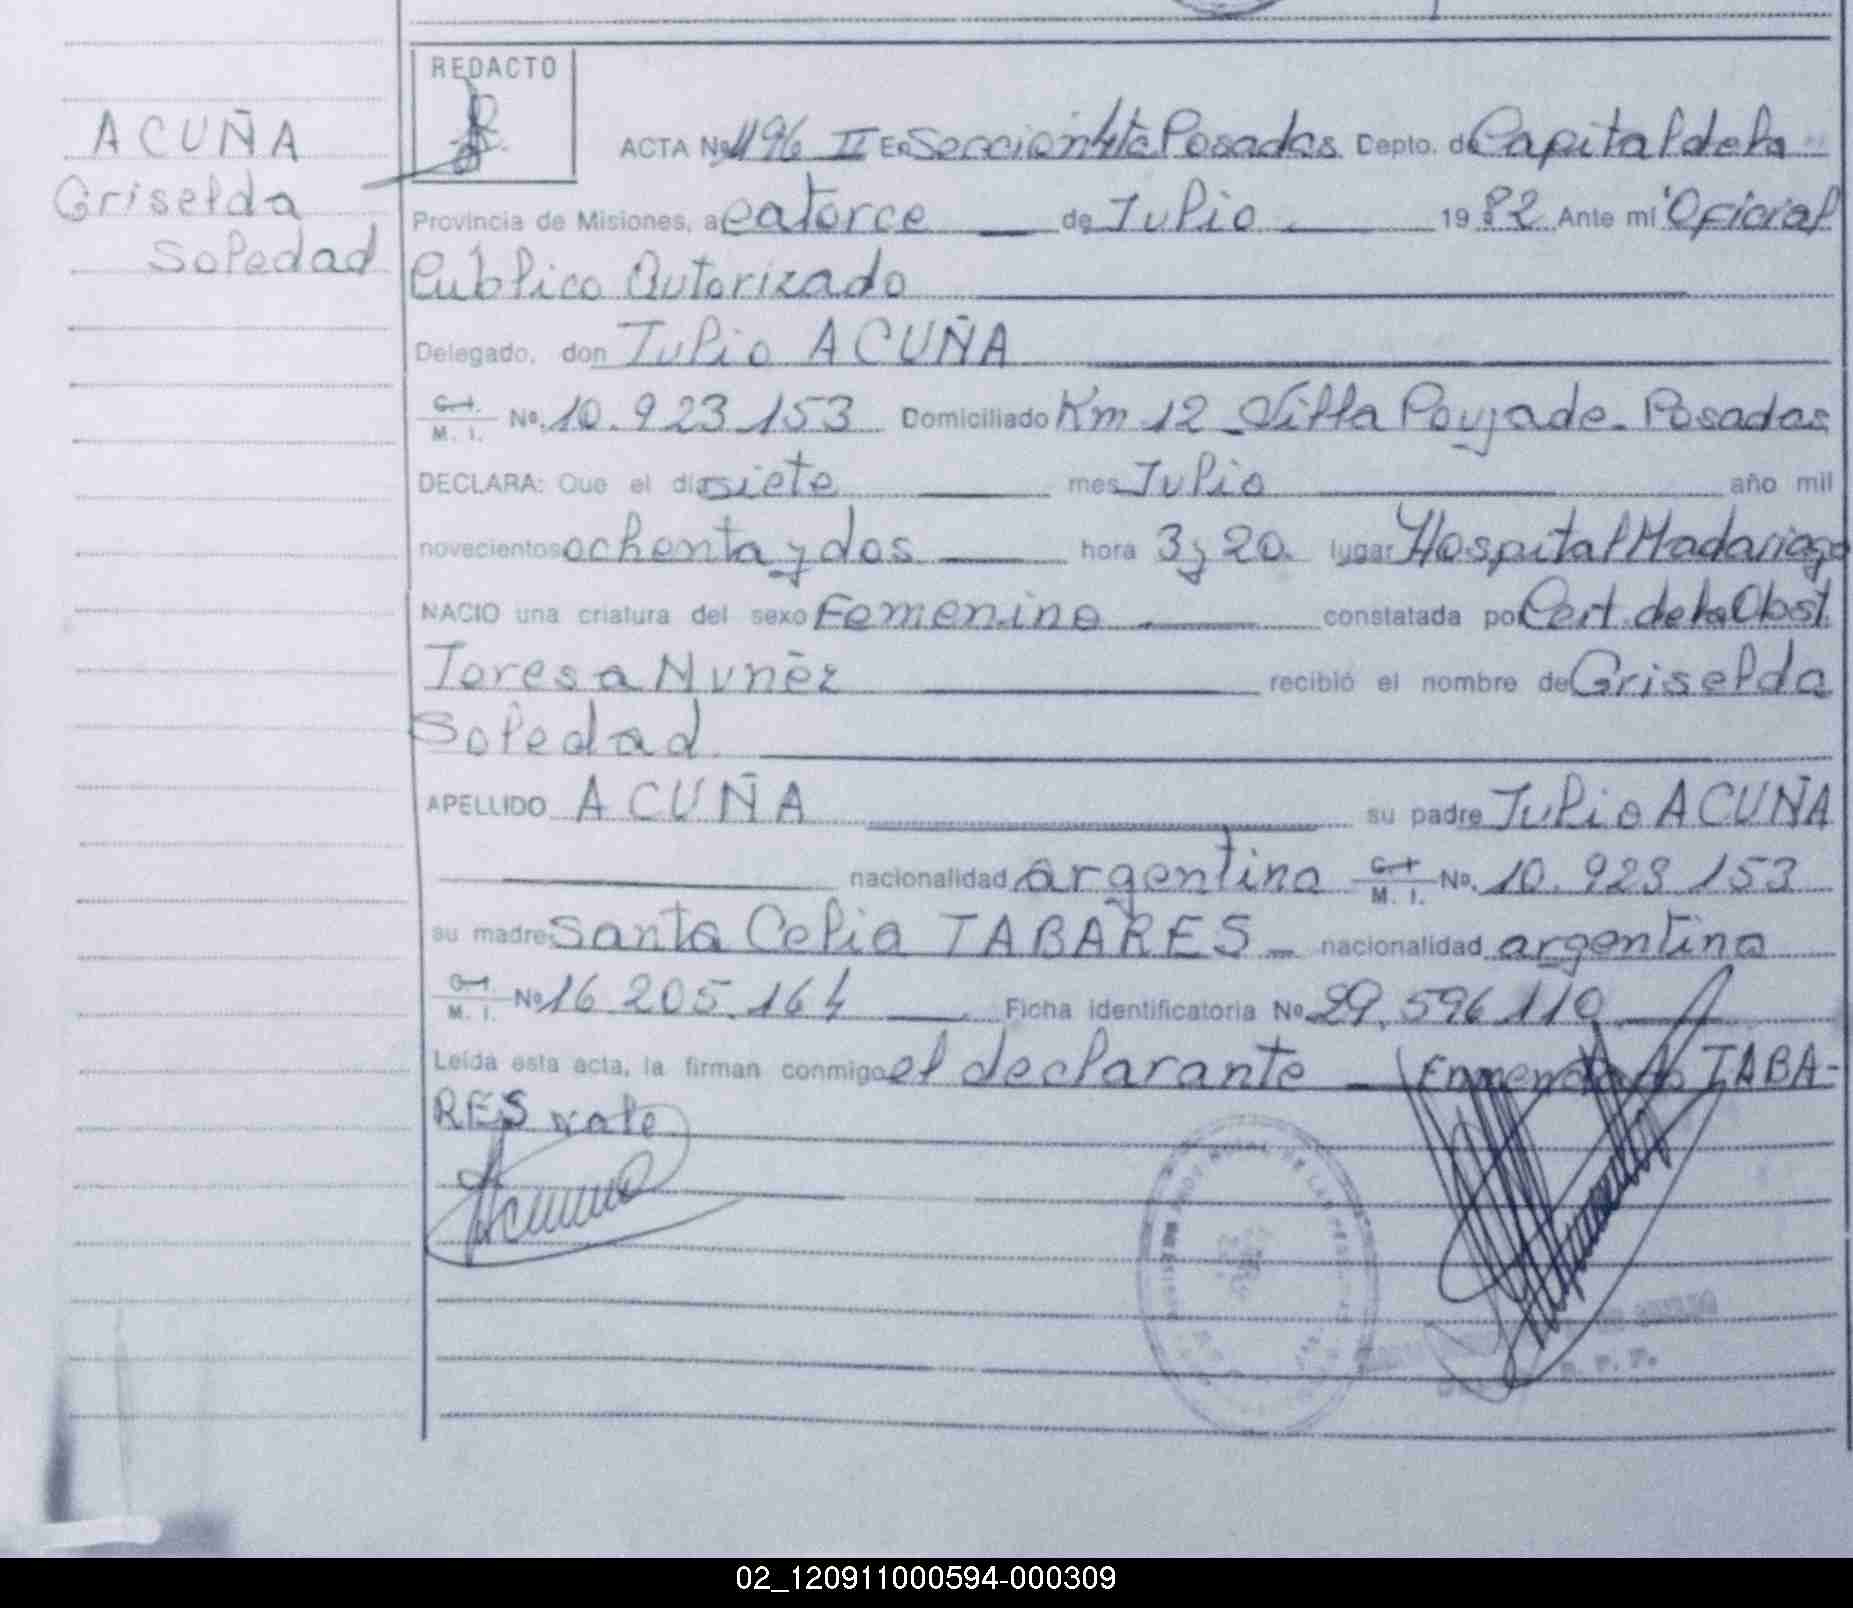 REDACTO
ACUÑA
Griselda
Soledad
ACTA Nº 1196 II En Sección 4ta Posadas Depto. de Capital de la
Provincia de Misiones, a catorce de Julio 1982 Ante mí Oficial
Publico Autorizado
Delegado, don Julio ACUÑA
C. I. M. I. Nº. 10.923.153 Domiciliado Km 12 Villa Poujade - Posadas
DECLARA: Que el día siete mes Julio año mil
novecientos ochenta y dos hora 3 y 20. lugar Hospital Madariaga
NACIO una criatura del sexo Femenino constatada por Cert. de la Obst.
Teresa Nuñez recibió el nombre de Griselda
Soledad
APELLIDO ACUÑA su padre Julio ACUÑA
nacionalidad argentina C. I. M. I. Nº. 10.923.153
su madre Santa Celia TABARES - nacionalidad argentina
C. I. M. I. Nº 16.205.164 Ficha identificatoria Nº 29.596.110
Leída esta acta, la firman conmigo el declarante Enmendado TABA-
RES vale
02_120911000594-000309